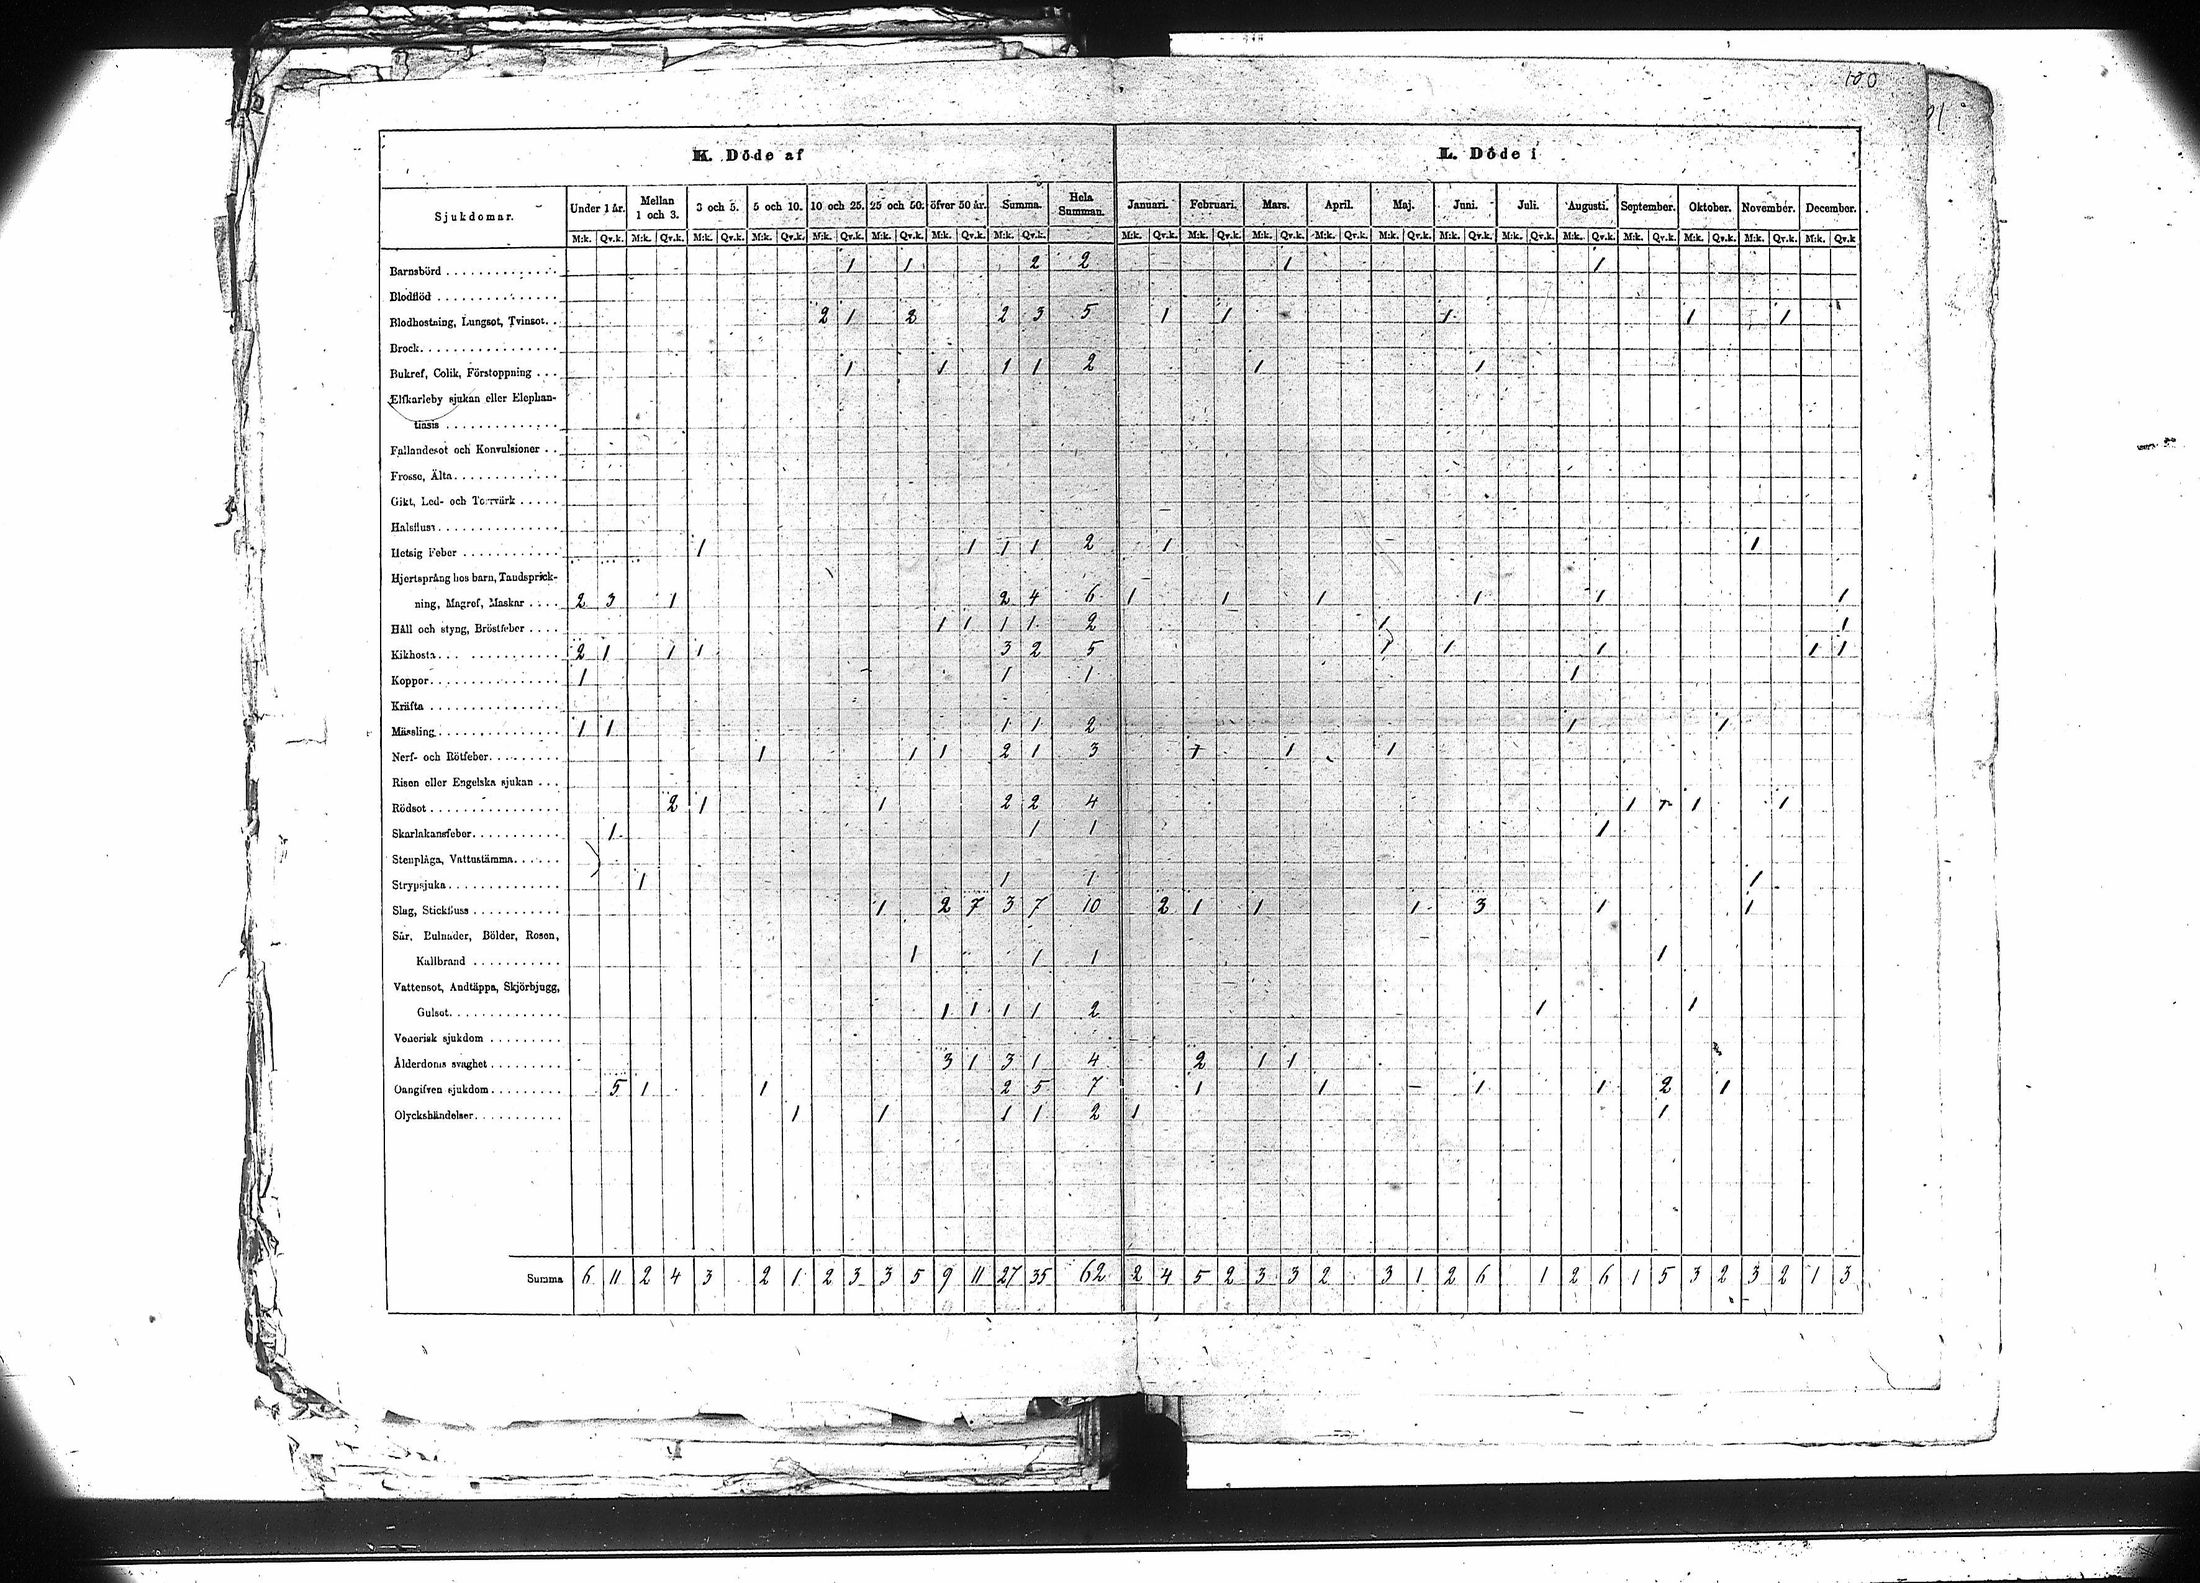 100
K. Döde af
L. Döde i
Sjukdomar. Under 1 år. Mellan 1 och 3. 3 och 5. 5 och 10. 10 och 25. 25 och 50. öfver 50 år. Summa. Hela Summan. Januari. Februari. Mars. April. Maj. Juni. Juli. Augusti. September. Oktober. November. December.
M:k. Qv.k. M:k. Qv.k. M:k. Qv.k. M:k. Qv.k. M:k. Qv.k. M:k. Qv.k. M:k. Qv.k. M:k. Qv.k. M:k. Qv.k. M:k. Qv.k. M:k. Qv.k. M:k. Qv.k. M:k. Qv.k. M:k. Qv.k. M:k. Qv.k. M:k. Qv.k. M:k. Qv.k. M:k. Qv.k. M:k. Qv.k. M:k. Qv.k
Barnsbörd 1 1 2 2 1 1
Blodflöd
Blodhostning, Lungsot, Tvinsot. 2 1 2 2 3 5 1 1 1 1 1
Brock
Bukref, Colik, Förstoppning 1 1 1 1 2 1 1
Elfkarleby sjukan eller Elephan-
tiasis
Fallandesot och Konvulsioner
Frosse, Älta
Gikt, Led- och Torrvärk
Halsfluss
Hetsig Feber 1 1 1 1 2 1 1
Hjertsprång hos barn, Tandsprick-
ning, Magref, Maskar 2 3 1 2 4 6 1 1 1 1 1 1
Håll och styng, Bröstfeber 1 1 1 1 2 1 1
Kikhosta 2 1 1 1 3 2 5 1 1 1 1 1
Koppor 1 1 1 1
Kräfta
Mässling 1 1 1 1 2 1 1
Nerf- och Rötfeber 1 1 1 2 1 3 1 1 1
Risen eller Engelska sjukan
Rödsot 2 1 1 2 2 4 1 1 1 1
Skarlakansfeber 1 1 1 1
Stenplåga, Vattustämma
Strypsjuka 1 1 1 1
Slag, Stickfluss 1 2 7 3 7 10 2 1 1 1 3 1 1
Sår, Bulnader, Bölder, Rosen,
Kallbrand 1 1 1 1
Vattensot, Andtäppa, Skjörbjugg,
Gulsot 1 1 1 1 2 1 1
Venerisk sjukdom
Ålderdoms svaghet 3 1 3 1 4 2 1 1
Oangifven sjukdom 5 1 1 2 5 7 1 1 1 1 2 1
Olyckshändelser 1 1 1 1 2 1 1
Summa 6 11 2 4 3 2 1 2 3 3 5 9 11 27 35 62 2 4 5 2 3 3 2 3 1 2 6 1 2 6 1 5 3 2 3 2 1 3